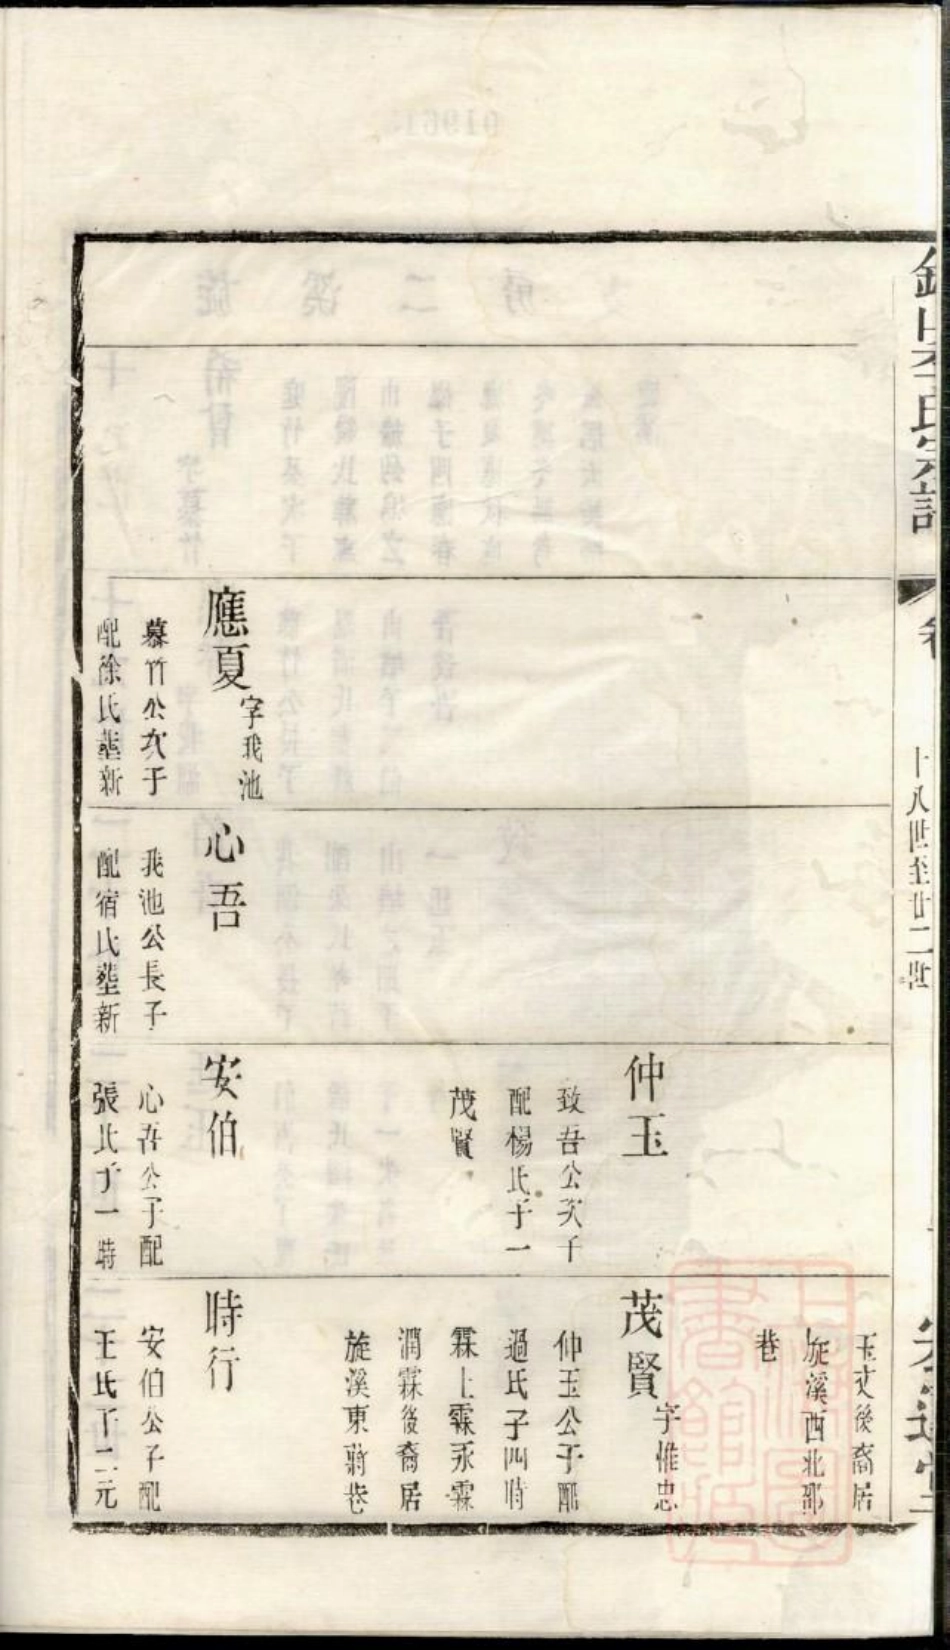 李氏宗譜
卷
十八世至廿二世
應夏 字我池
慕竹公次子
配徐氏塟新
心吾
我池公長子
配宿氏塟新
仲玉
致吾公次子
配楊氏子一
茂賢
安伯
心吾公子配
張氏子一時
玉丈後裔居
旋溪西北邵
巷
茂賢 字惟忠
仲玉公子配
過氏子四時
霖上霖永霖
潤霖後裔居
旋溪東蔣巷
時行
安伯公子配
王氏子二元